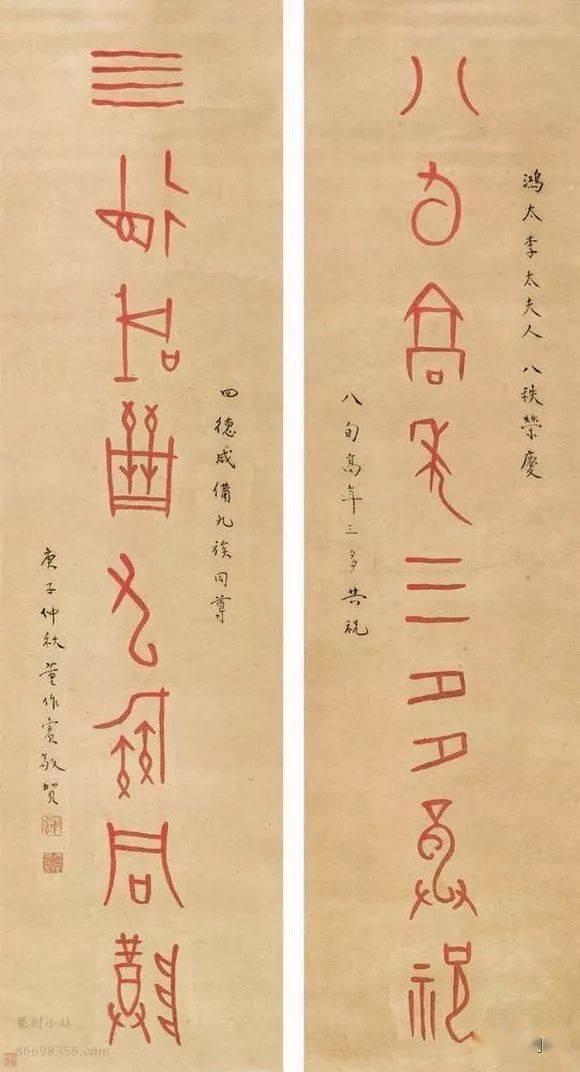 鴻太李太夫人 八秩榮慶
八旬高年三多共祝
八旬高年三多共祝
四德咸備九族同尊
四德咸備九族同尊
庚子仲秋 董作賓敬賀
篆刻小站
86698355.com